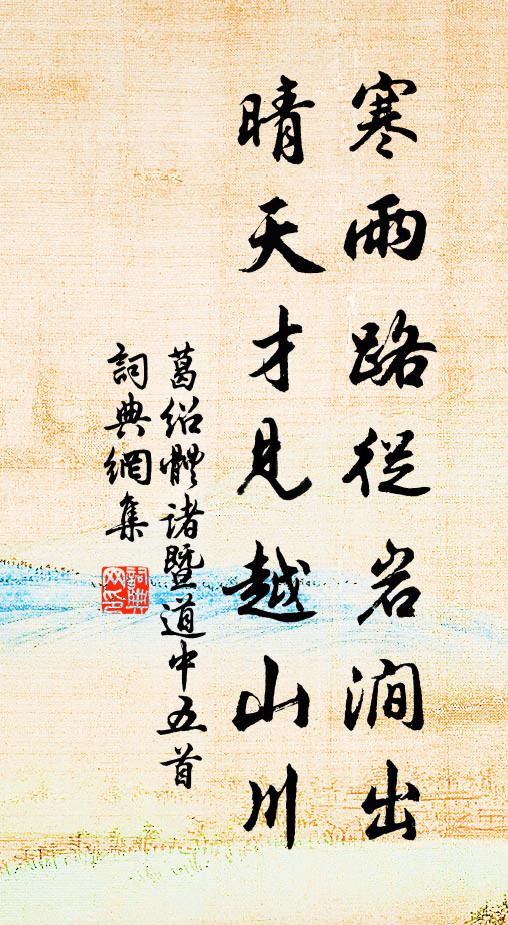 寒雨路從岩澗出
晴天才見越山川
葛紹體諸暨道中五首
詞典網集
詞典
网印